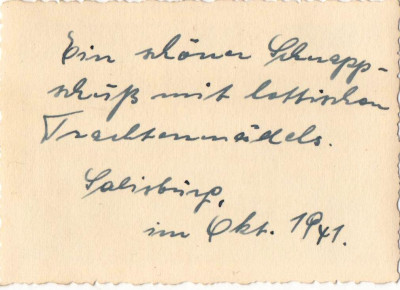 Ein schöner Schnapp-
schuß mit lettischen
Trachtenmädels.
Salisburg,
im Okt. 1941.